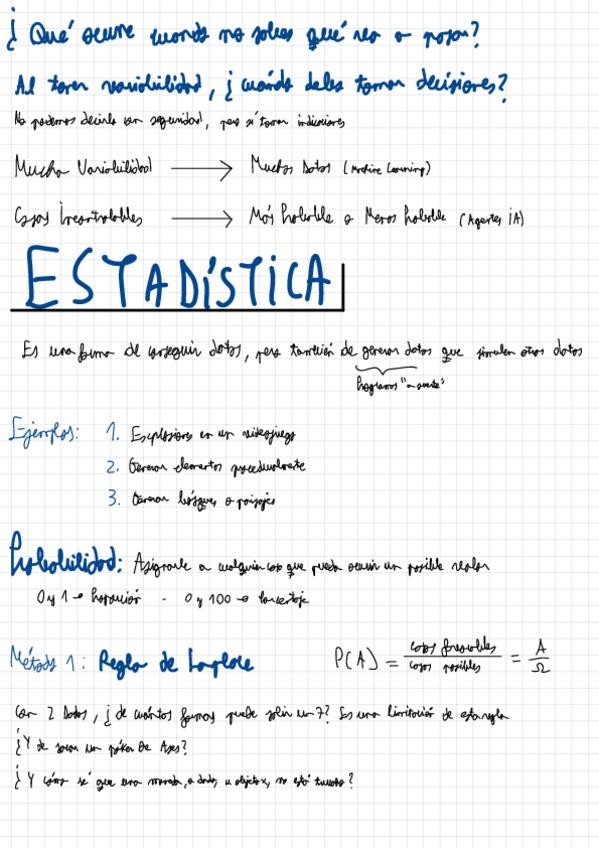 ¿Qué ocurre cuando no sabes qué va a pasar?
Al tener variabilidad, ¿cuándo debes tomar decisiones?
No podemos decirlo con seguridad, pero sí tomar indicaciones
Mucha Variabilidad → Muchos Datos (Machine Learning)
Cosas Incontrolables → Más Probable o Menos Probable (Agentes IA)
ESTADÍSTICA
Es una forma de conseguir datos, pero también de generar datos que simulen otros datos
hagamos
Ejemplos: 1. Explosiones en un videojuego
2. Generar elementos proceduralmente
3. Generar bosques o paisajes
Probabilidad: Asignarle a cualquier cosa que pueda ocurrir un posible valor
0 y 1 → Proporción - 0 y 100 → Porcentaje
Método 1: Regla de Laplace P(A) = casos favorables / casos posibles = A / Ω
Con 2 Dados, ¿de cuántas formas puede salir un 7? Es una limitación de esta regla
¿Y de sacar un póker De Ases?
¿Y cómo sé que una moneda, o dado, u objeto x, no está trucado?